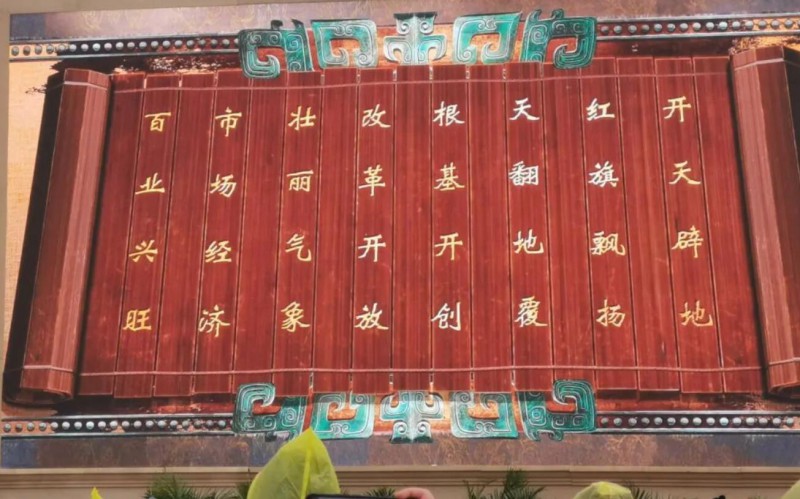 开天辟地
红旗飘扬
天翻地覆
根基开创
改革开放
壮丽气象
市场经济
百业兴旺